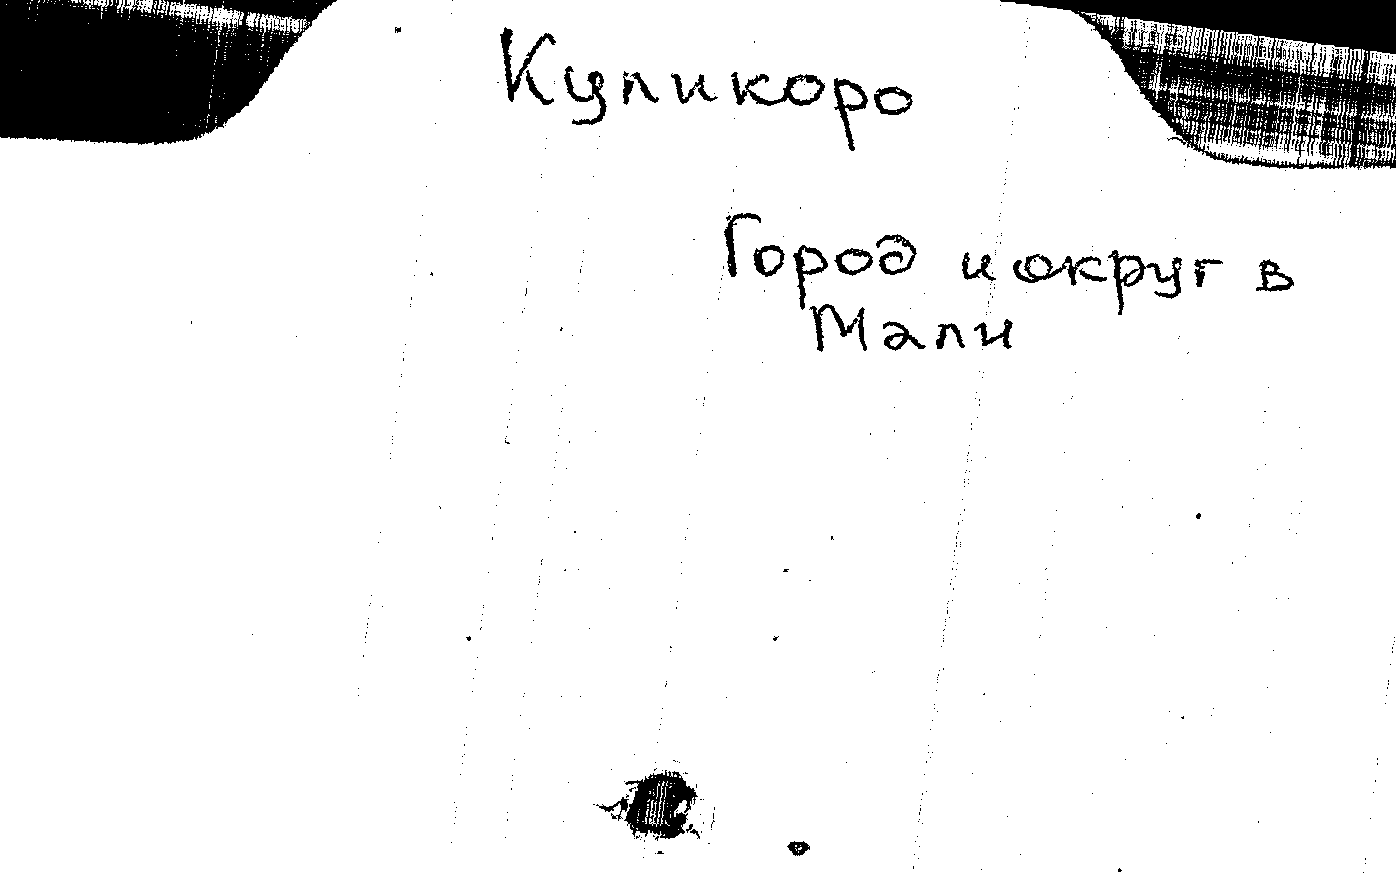 Куликоро
Город и округ в
Мали